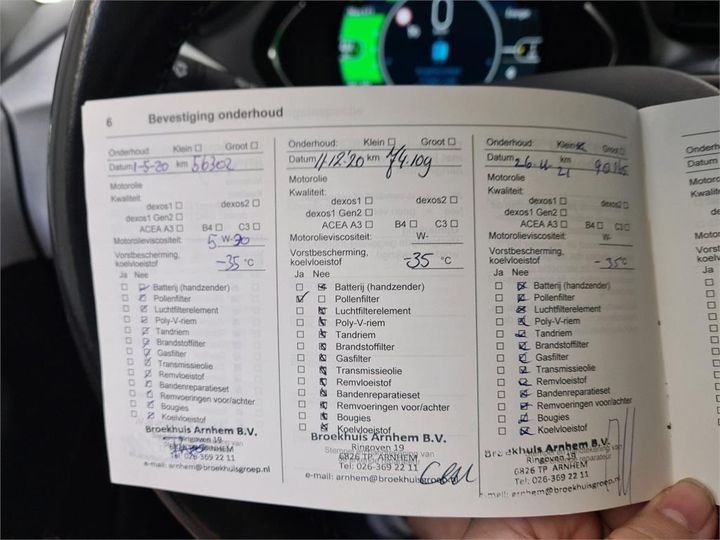 6 Bevestiging onderhoud
Onderhoud: Klein Groot
Datum 1-5-20 km 56302
Motorolie
Kwaliteit:
dexos1 dexos2
dexos1 Gen2
ACEA A3 B4 C3
Motorolieviscositeit: 5 W-30
Vorstbescherming,
koelvloeistof -35 °C
Ja Nee
Batterij (handzender)
Pollenfilter
Luchtfilterelement
Poly-V-riem
Tandriem
Brandstoffilter
Gasfilter
Transmissieolie
Remvloeistof
Bandenreparatieset
Remvoeringen voor/achter
Bougies
Koelvloeistof
Broekhuis Arnhem B.V.
Ringoven 19
Tel: 026-369 22 11
e-mail: arnhem@broekhuisgroep.nl
Onderhoud: Klein Groot
Datum 11.12.'20 km 74.109
Motorolie
Kwaliteit:
dexos1 dexos2
dexos1 Gen2
ACEA A3 B4 C3
Motorolieviscositeit: W-
Vorstbescherming,
koelvloeistof -35 °C
Ja Nee
Batterij (handzender)
Pollenfilter
Luchtfilterelement
Poly-V-riem
Tandriem
Brandstoffilter
Gasfilter
Transmissieolie
Remvloeistof
Bandenreparatieset
Remvoeringen voor/achter
Bougies
Koelvloeistof
Broekhuis Arnhem B.V.
Ringoven 19
6826 TP ARNHEM
Tel: 026-369 22 11
e-mail: arnhem@broekhuisgroep.nl
Onderhoud: Klein Groot
Datum 26-4 21 km
Motorolie
Kwaliteit:
dexos1 dexos2
dexos1 Gen2
ACEA A3 B4 C3
Motorolieviscositeit: W-
Vorstbescherming,
koelvloeistof -35 °C
Ja Nee
Batterij (handzender)
Pollenfilter
Luchtfilterelement
Poly-V-riem
Tandriem
Brandstoffilter
Gasfilter
Transmissieolie
Remvloeistof
Bandenreparatieset
Remvoeringen voor/achter
Bougies
Koelvloeistof
Broekhuis Arnhem B.V.
Ringoven 19
6826 TP ARNHEM
Tel: 026-369 22 11
e-mail: arnhem@broekhuisgroep.nl